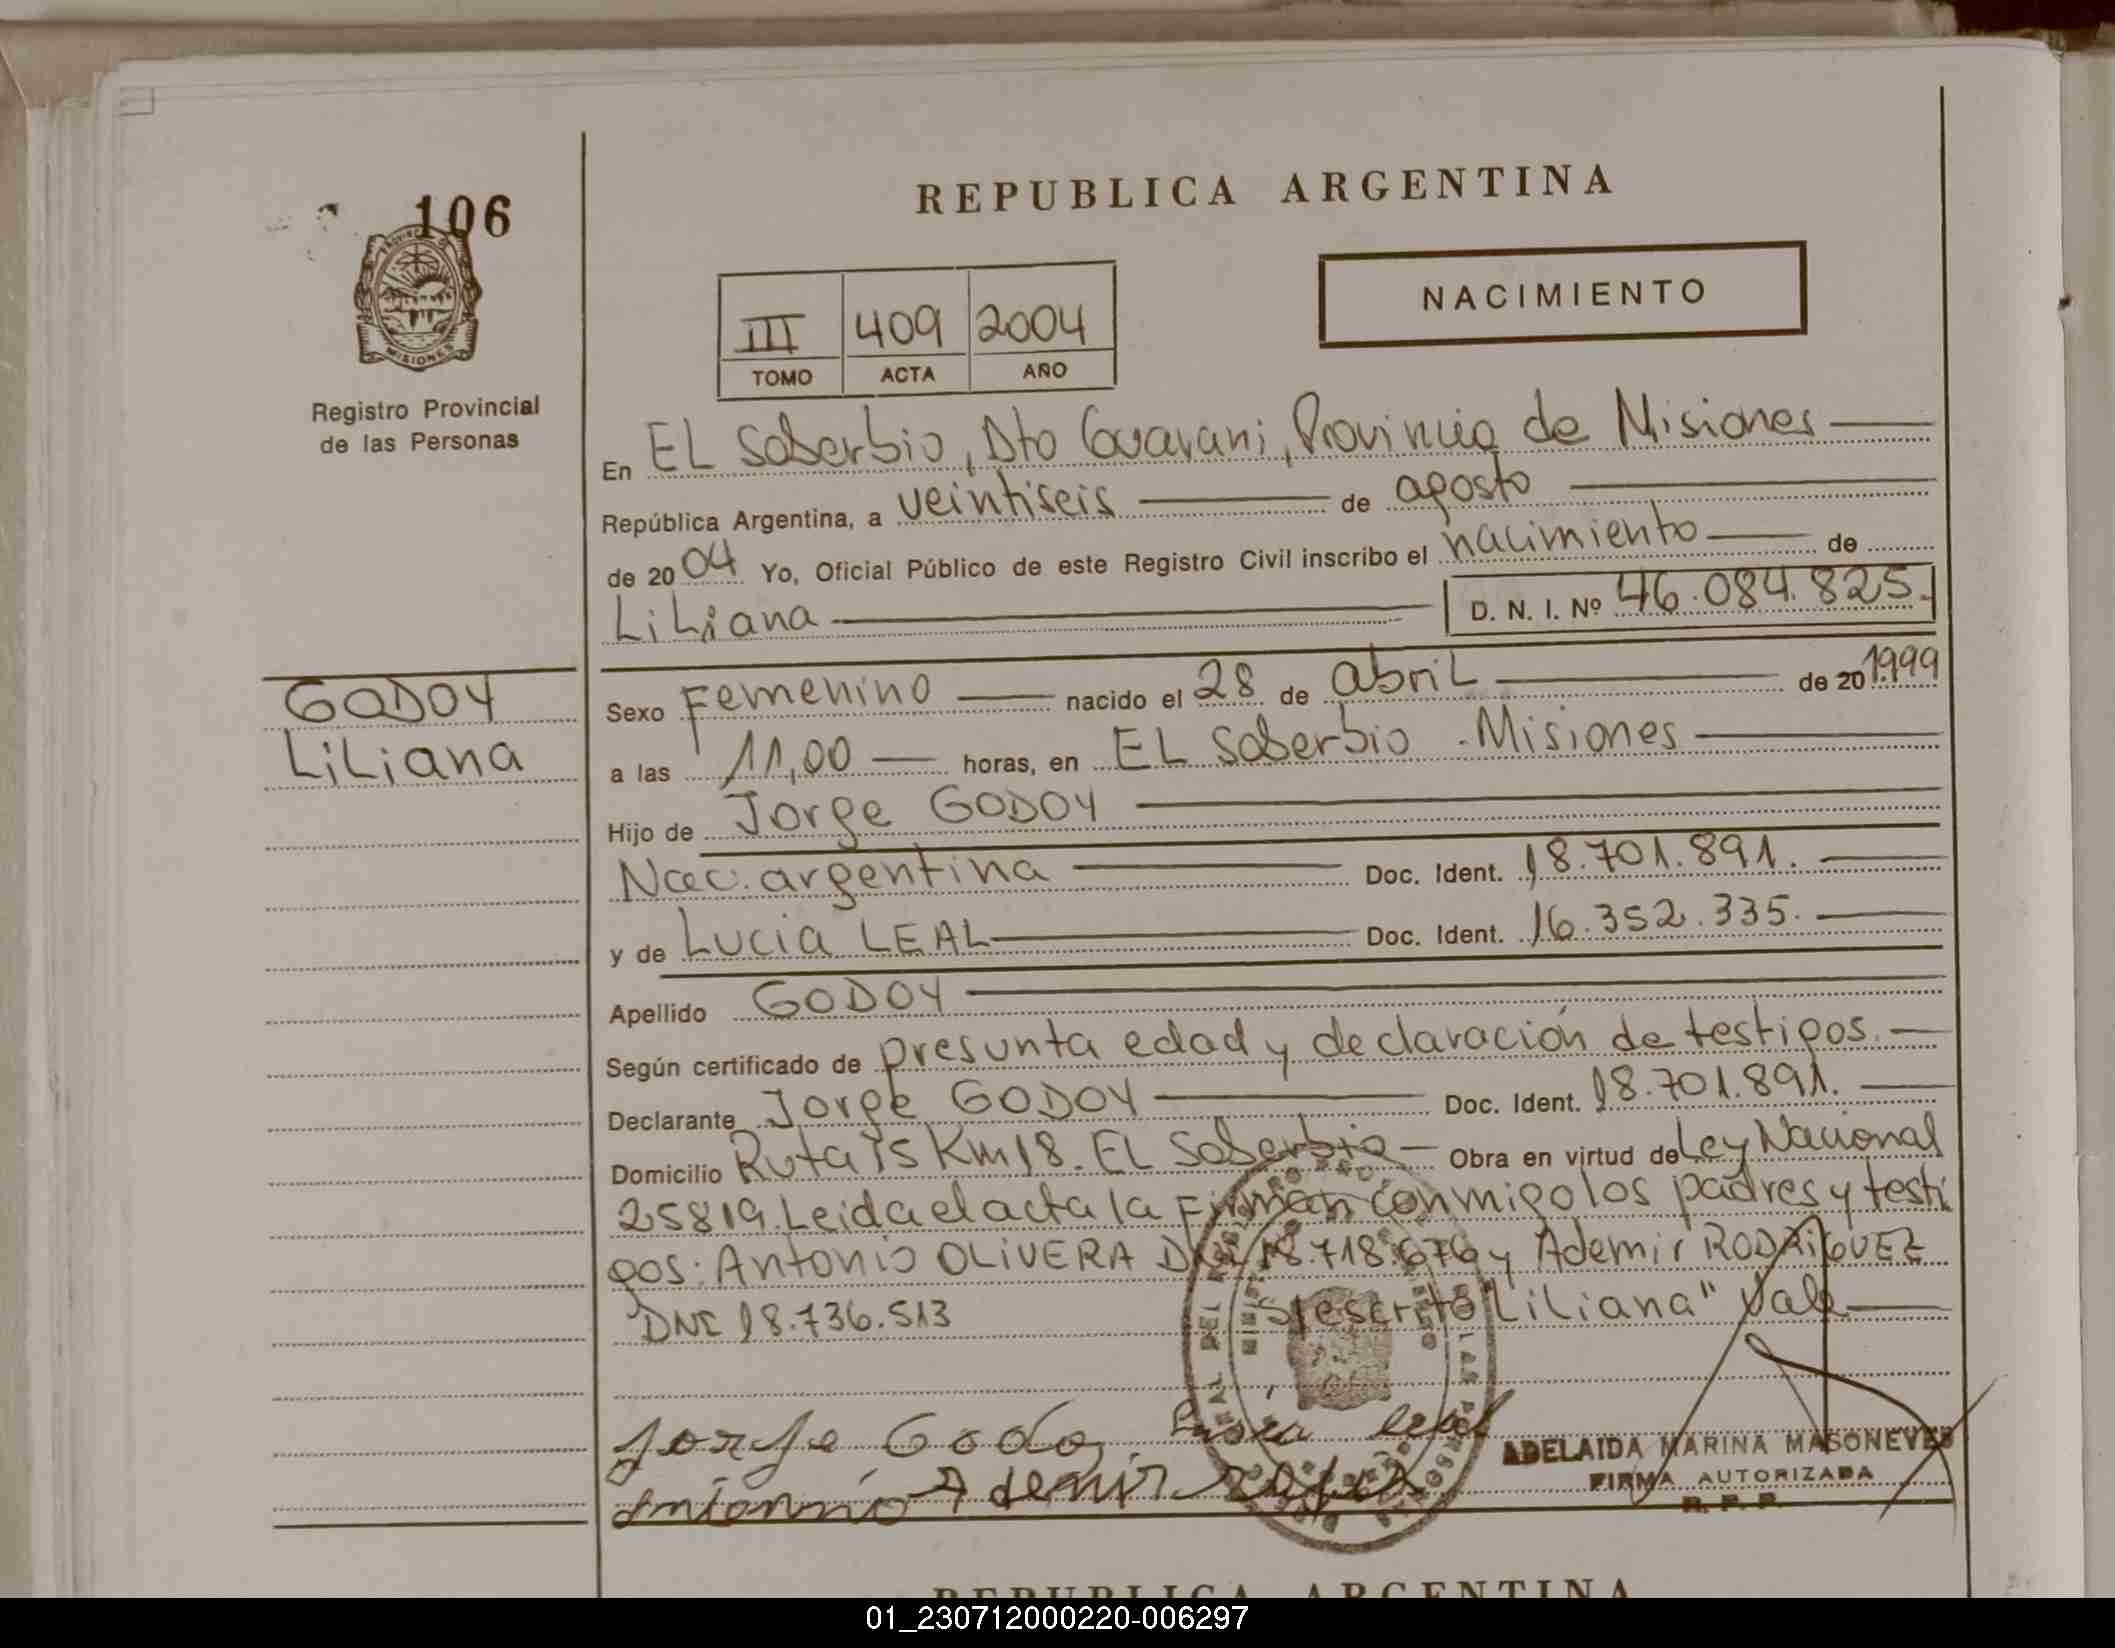 106
REPUBLICA ARGENTINA
NACIMIENTO
III 409 2004
TOMO ACTA AÑO
MISIONES
Registro Provincial
de las Personas
En EL Soberbio, Dto Guarani, Provincia de Misiones
República Argentina, a veintiseis de agosto
de 2004 Yo, Oficial Público de este Registro Civil inscribo el nacimiento de
LiLiana D. N. I. Nº 46.084.825.
GODOY
LiLiana
Sexo Femenino nacido el 28 de abriL de 20 1999
a las 11,00 horas, en EL Soberbio - Misiones
Hijo de Jorge GODOY
Nac. argentina Doc. Ident. 18.701.891.
y de Lucia LEAL Doc. Ident. 16.352.335.
Apellido GODOY
Según certificado de presunta edad y declaración de testigos.
Declarante Jorge GODOY Doc. Ident. 18.701.891.
Domicilio Ruta 15 Km 18. EL Soberbio Obra en virtud de Ley Nacional
25819. Leida el acta la Firman conmigo los padres y testi
gos: Antonio OLIVERA DNI 18.718.676 y Ademir RODRIGUEZ
DNI 18.736.513 S/escrito "LiLiana" Vale
Jorge Godoy Lusia leal
Antonnio Ademir
ADELAIDA MARINA MASONEVES
FIRMA AUTORIZADA
R. P. P.
REPUBLICA ARGENTINA
01_230712000220-006297